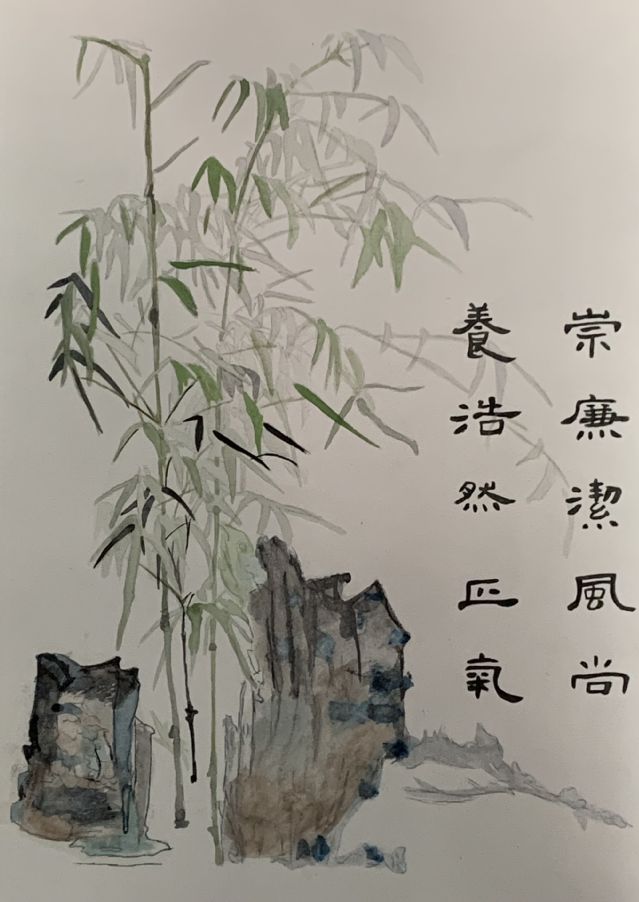 崇廉潔風尚
養浩然正氣